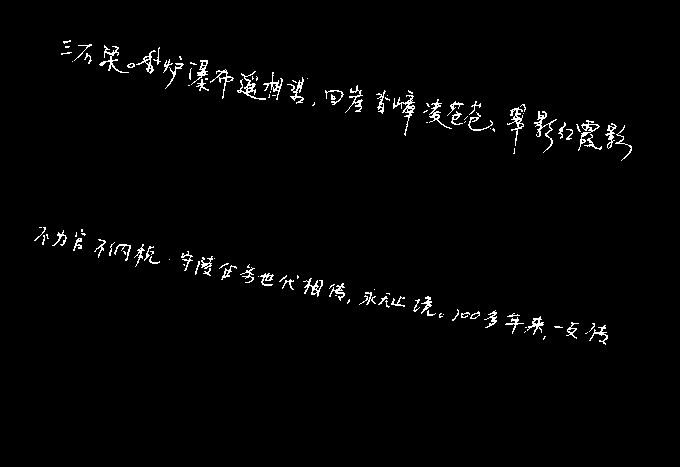 三石梁。香炉瀑布遥相望,回崖沓嶂凌苍苍。翠影红霞影
不为官不纳税。守陵任务世代相传,永无止境。300多年来,一支传